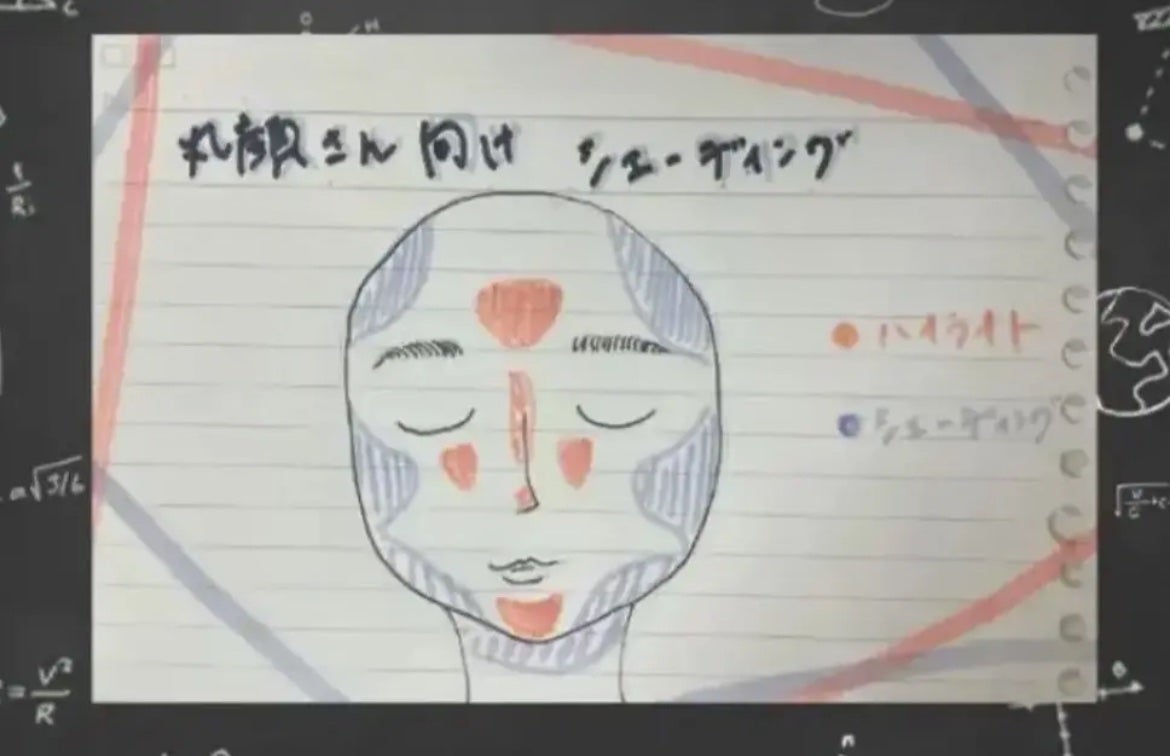 丸顔さん向け シェーディング
ハイライト
シェーディング
H
a√3/6
= V² / R